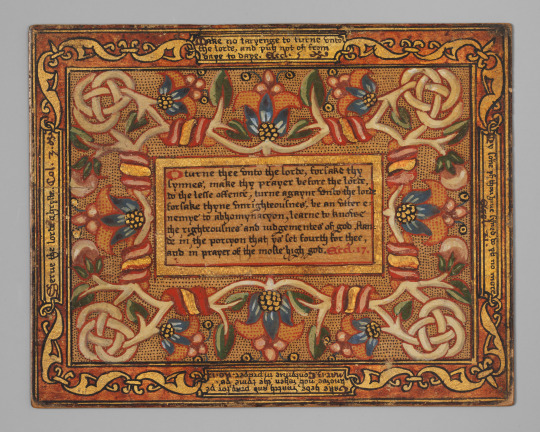 make no taryenge to turne vnto
the lorde, and put not of from
daye to daye. Eccl. 5
O turne thee vnto the lorde, forsake thy
synnes, make thy prayer before the lorde,
do the lesse offence, turne agayne vnto the lorde
forsake thyne vnrighteousnes, be an vtter e
nemye to abhomynacyon, learne to knowe
the righteousnes and iudgementes of god, stan
de in the porcyon that ys set fourth for thee,
and in prayer of the moste hygh god. Eccl. 17.
Serve the lorde chryste. Col. 3.
Take hede, watch and praye, for ye
knowe not when the tyme ys.